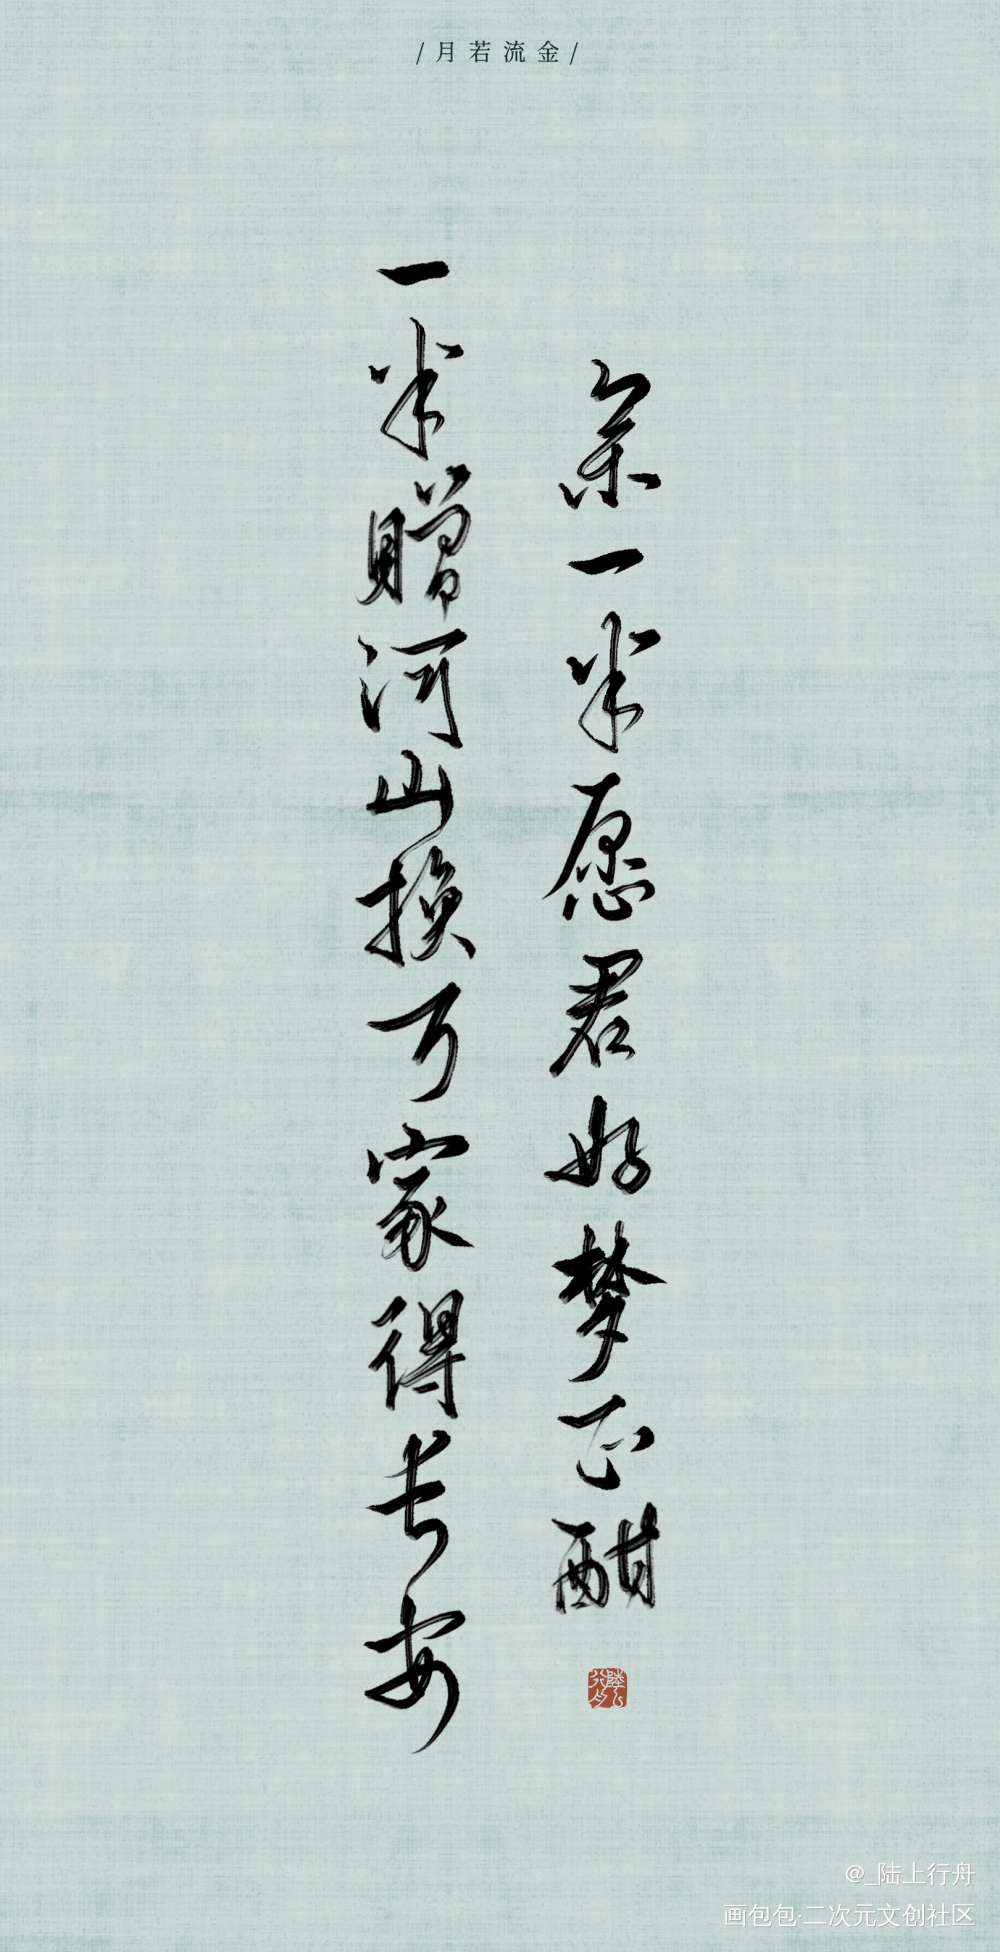 /月若流金/
一半贈河山換万家得长安
余一半愿君好梦正酣
@_陆上行舟
画包包·二次元文创社区